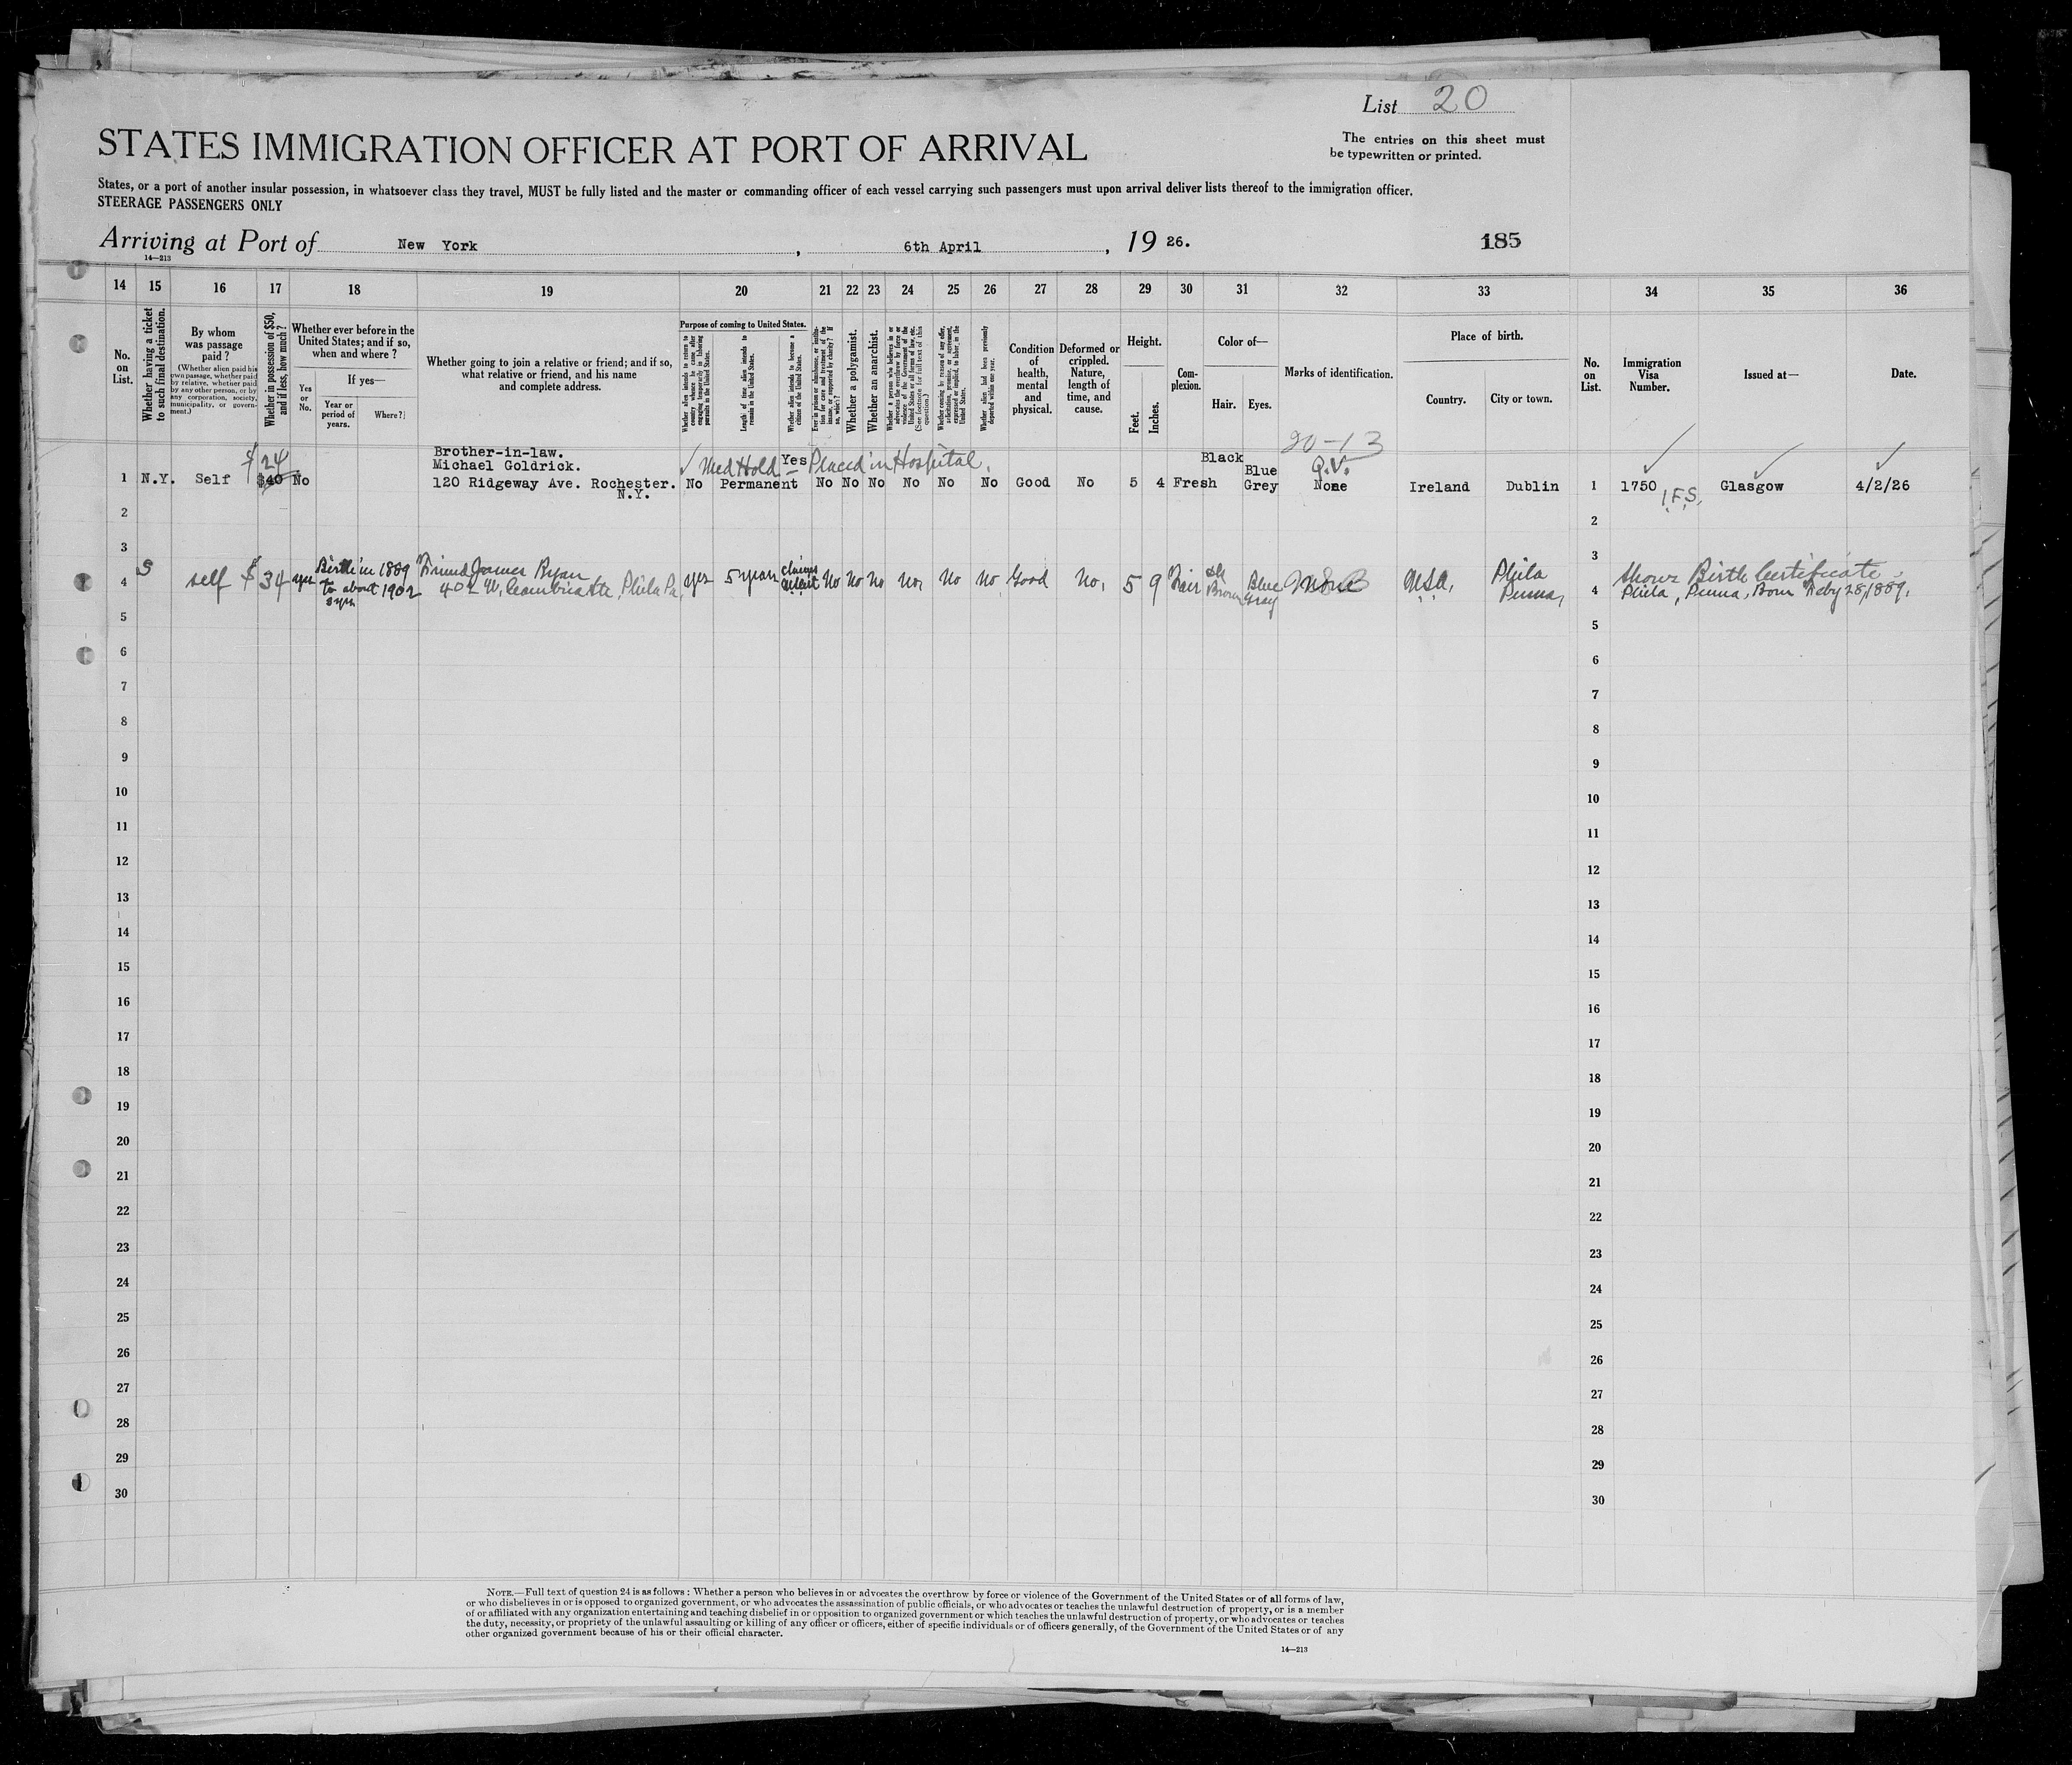 List 20
STATES IMMIGRATION OFFICER AT PORT OF ARRIVAL
The entries on this sheet must
be typewritten or printed.
States, or a port of another insular possession, in whatsoever class they travel, MUST be fully listed and the master or commanding officer of each vessel carrying such passengers must upon arrival deliver lists thereof to the immigration officer.
STEERAGE PASSENGERS ONLY
Arriving at Port of New York, 6th April, 19 26.
185
14—213
14 15 16 17 18 19 20 21 22 23 24 25 26 27 28 29 30 31 32 33 34 35 36
No. on List.
Whether having a ticket to such final destination.
By whom was passage paid?
(Whether alien paid his own passage, whether paid by relative, whether paid by any other person, or by any corporation, society, municipality, or government.)
Whether in possession of $50, and if less, how much?
Whether ever before in the United States; and if so, when and where?
Yes or No.
If yes—
Year or period of years.
Where?
Whether going to join a relative or friend; and if so, what relative or friend, and his name and complete address.
Purpose of coming to United States.
Whether alien intends to return to country whence he came after engaging temporarily in laboring pursuits in the United States.
Length of time alien intends to remain in the United States.
Whether alien intends to become a citizen of the United States.
Ever in prison or almshouse, or institution for care and treatment of the insane, or supported by charity? If so, which?
Whether a polygamist.
Whether an anarchist.
Whether a person who believes in or advocates the overthrow by force or violence of the Government of the United States or all forms of law, etc. (See footnote for full text of this question.)
Whether coming by reason of any offer, solicitation, promise, or agreement, expressed or implied, to labor, in the United States.
Whether alien had been previously deported within one year.
Condition of health, mental and physical.
Deformed or crippled. Nature, length of time, and cause.
Height.
Feet.
Inches.
Complexion.
Color of—
Hair.
Eyes.
Marks of identification.
Place of birth.
Country.
City or town.
No. on List.
Immigration Visa Number.
Issued at—
Date.
20-13
$24
Brother-in-law.
Michael Goldrick.
Med Hold Yes Placed in Hospital.
Black
Blue
Q.V.
1 N.Y. Self $40 No 120 Ridgeway Ave. Rochester. No Permanent No No No No No No Good No 5 4 Fresh Grey None Ireland Dublin 1 1750 Glasgow 4/2/26
N.Y.
2 2
3 3
Birth in 1889 Friend James Ryan claims Dk Phila Shows Birth Certificate.
4 self $34 yes To about 1902 402 W. Cambria St, Phila Pa, yes 5 years No No No No, No No, Good No, 5 9 Fair Brown Blue None USA, Penna, 4 Phila, Penna, Born Feby 28, 1889.
Gray
5 5
6 6
7 7
8 8
9 9
10 10
11 11
12 12
13 13
14 14
15 15
16 16
17 17
18 18
19 19
20 20
21 21
22 22
23 23
24 24
25 25
26 26
27 27
28 28
29 29
30 30
NOTE.—Full text of question 24 is as follows: Whether a person who believes in or advocates the overthrow by force or violence of the Government of the United States or of all forms of law,
or who disbelieves in or is opposed to organized government, or who advocates the assassination of public officials, or who advocates or teaches the unlawful destruction of property, or is a member
of or affiliated with any organization entertaining and teaching disbelief in or opposition to organized government or which teaches the unlawful destruction of property, or who advocates or teaches
the duty, necessity, or propriety of the unlawful assaulting or killing of any officer or officers, either of specific individuals or of officers generally, of the Government of the United States or of any
other organized government because of his or their official character.
14—213